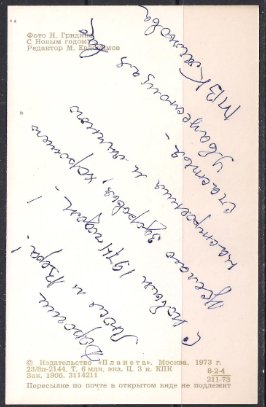 Фото Н. Гридн
С Новым годом!
Редактор М. Кас
Дорогие
Люся и Вера!
С Новым 1974 годом!
Желаю здоровья, хорошего
настроения и личного
счастья.
Уважающая вас
МВК
© Издательство «Планета». Москва. 1973 г.
23/8п-2144. Т. 6 млн. экз. Ц. 3 к. КПК
Зак. 1906. 3114211
8-2-4
211-73
Пересылке по почте в открытом виде не подлежит